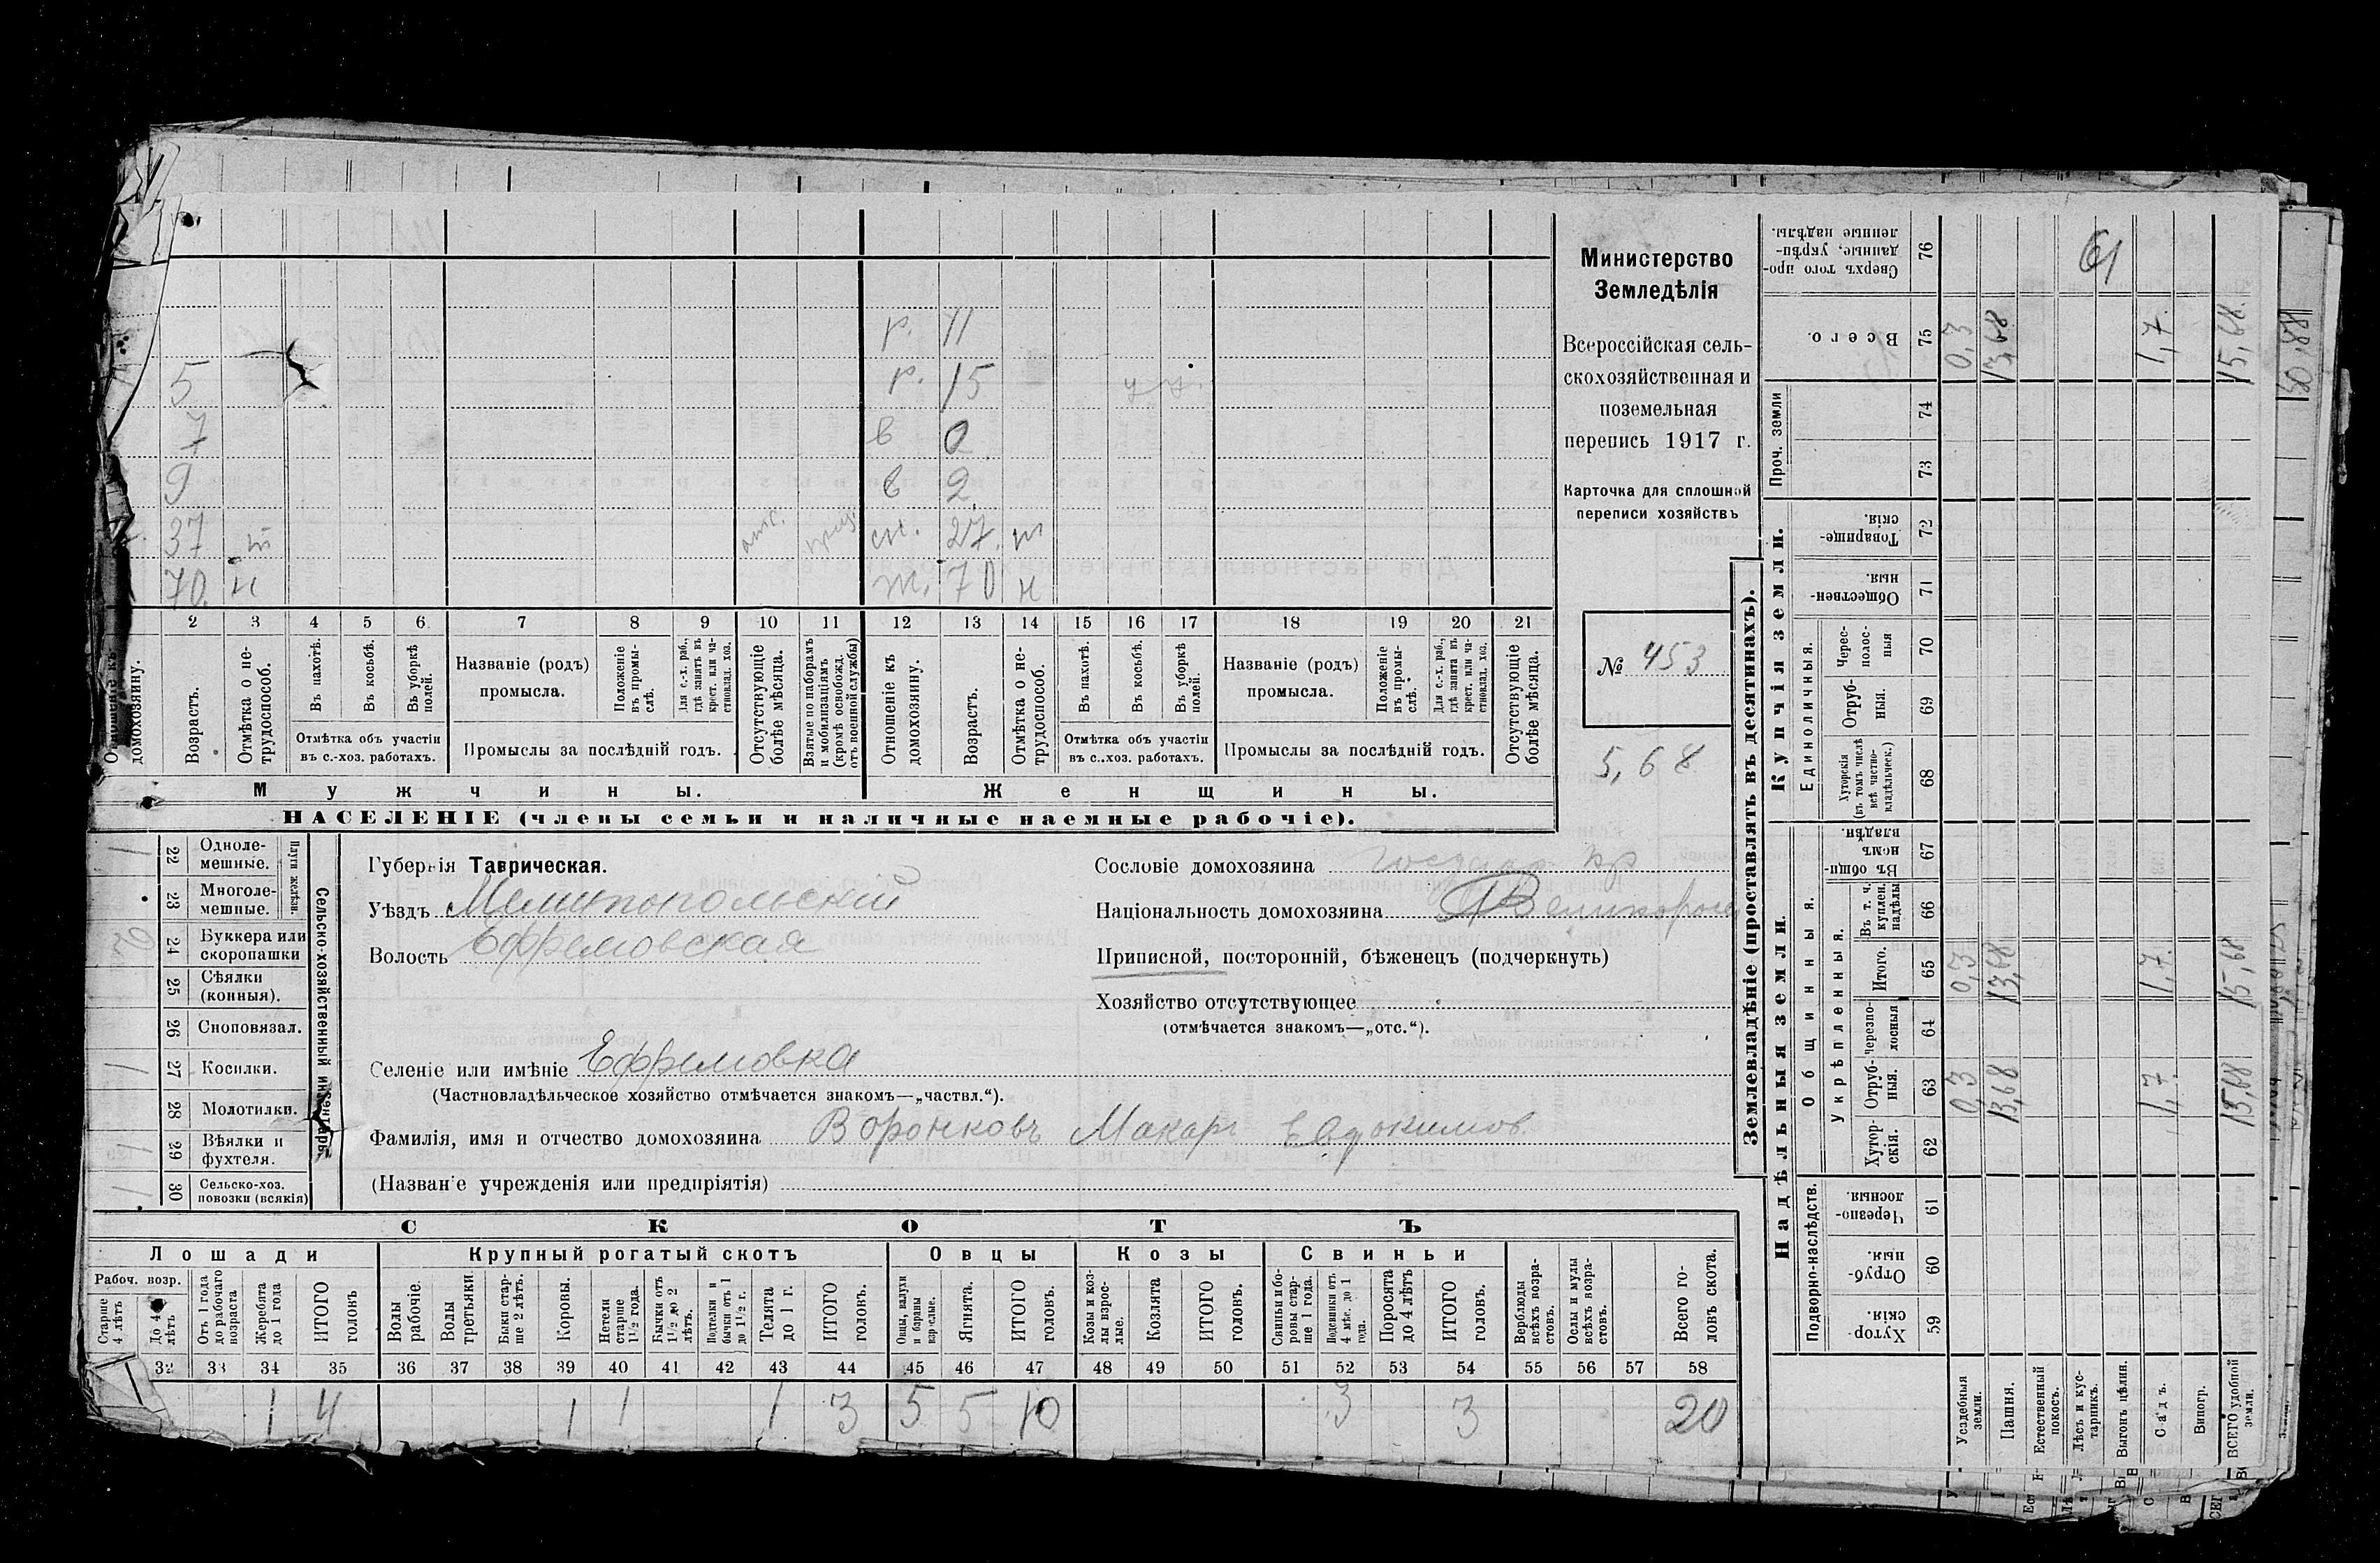 Министерство
Земледѣлія
Всероссійская сель-
скохозяйственная и
поземельная
перепись 1917 г.
Карточка для сплошной
переписи хозяйствъ
№ 453
5,68
р. 11
5 р. 15
7 в 0
9 в 2
37 т отс. 27 т
70 н 70 н
2 3 4 5 6 7 8 9 10 11 12 13 14 15 16 17 18 19 20 21
Отношеніе къ домохозяину.
Возрастъ.
Отмѣтка о не-трудоспособ.
Въ пахотѣ.
Въ косьбѣ.
Въ уборкѣ полей.
Отмѣтка объ участіи
въ с.-хоз. работахъ.
Названіе (родъ)
промысла.
Положеніе въ промы-слѣ.
Для с.-х. раб., гдѣ занятъ въ крест. или ча-стновлад. хоз.
Промыслы за послѣдній годъ.
Отсутствующіе болѣе мѣсяца.
Взятые по наборамъ и мобилизаціямъ (кромѣ освобожд. отъ военной службы)
Отношеніе къ домохозяину.
Возрастъ.
Отмѣтка о не-трудоспособ.
Въ пахотѣ.
Въ косьбѣ.
Въ уборкѣ полей.
Отмѣтка объ участіи
въ с.-хоз. работахъ.
Названіе (родъ)
промысла.
Положеніе въ промы-слѣ.
Для с.-х. раб., гдѣ занята въ крест. или ча-стновлад. хоз.
Промыслы за послѣдній годъ.
Отсутствующіе болѣе мѣсяца.
Мужчины. Женщины.
НАСЕЛЕНІЕ (члены семьи и наличные наемные рабочіе).
Сельско-хозяйственный инвентарь.
Плуги желѣзн.
1 22 Одноле-мешные.
23 Многоле-мешные.
2 24 Буккера или скоропашки
25 Сѣялки (конныя).
26 Сноповязал.
1 27 Косилки.
28 Молотилки.
1 29 Вѣялки и фухтеля.
1 30 Сельско-хоз. повозки (всякія)
Губернія Таврическая.
Уѣздъ Мелитопольскій
Волость Ефремовская
Селеніе или имѣніе Ефремовка
(Частновладѣльческое хозяйство отмѣчается знакомъ—„частвл.“).
Фамилія, имя и отчество домохозяина Воронковъ Макаръ Евдокимов.
(Названіе учрежденія или предпріятія)
Сословіе домохозяина государ кр
Національность домохозяина Великоросс
Приписной, посторонній, бѣженецъ (подчеркнуть)
Хозяйство отсутствующее
(отмѣчается знакомъ—„отс.“).
СКОТЪ
Лошади Крупный рогатый скотъ Овцы Козы Свиньи
Рабоч. возр.
Старше 4 лѣтъ
До 4 лѣтъ
Отъ 1 года до рабочаго возраста
Жеребята до 1 года
ИТОГО головъ
Волы рабочіе.
Волы третьяки.
Быки стар-ше 2 лѣтъ.
Коровы.
Нетели старше 1½ года.
Бычки отъ 1½ до 2 лѣтъ.
Подтелки и бычки отъ 1 до 1½ г.
Телята до 1 г.
ИТОГО головъ.
Овцы, валухи и бараны взрослые.
Ягнята.
ИТОГО головъ.
Козы и коз-лы взрос-лые.
Козлята
ИТОГО головъ.
Свиньи и бо-ровы стар-ше 1 года.
Подсвинки отъ 4 мѣс. до 1 года.
Поросята до 4 лѣтъ
ИТОГО головъ.
Верблюды всѣхъ возра-стовъ.
Ослы и мулы всѣхъ возра-стовъ.
Всего го-ловъ скота.
32 33 34 35 36 37 38 39 40 41 42 43 44 45 46 47 48 49 50 51 52 53 54 55 56 57 58
1 4 1 1 1 3 5 5 10 3 3 20
Землевладѣніе (проставлять въ десятинахъ).
Надѣльныя земли. Купчія земли. Проч. земли
Подворно-наслѣдств. Общинныя. Единоличныя.
Укрѣпленныя.
Хутор-скія. 59
Отруб-ныя. 60
Черезпо-лосныя. 61
Хутор-скія. 62
Отруб-ныя. 63
Черезпо-лосныя 64
Итого. 65
Въ т. ч. куплен. надѣлы 66
Въ общин-номъ владѣн. 67
Хуторскія (въ томъ числѣ всѣ частно-владѣльческ.) 68
Отруб-ныя. 69
Черес-полос-ныя 70
Обществен-ныя. 71
Товарище-скія. 72
73
74
Всего. 75
Сверхъ того про-данные, укрѣп-ленные надѣлы. 76
Усадебныя земли. 0,3 0,3 0,3
Пашня. 13,68 13,68 13,68
Естественный покосъ.
Лѣсъ и кус-тарникъ.
Выгонъ цѣлин.
Садъ. 1,7 1,7 1,7
Виногр.
ВСЕГО удобной земли. 15,68 15,68 15,68
61